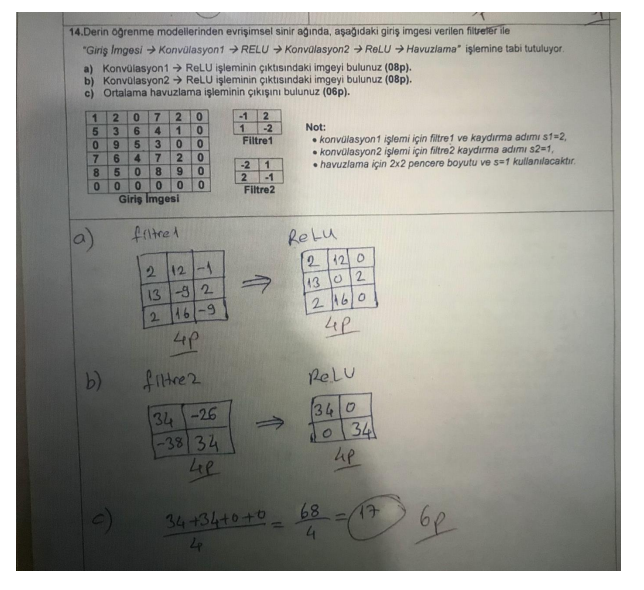 14.Derin öğrenme modellerinden evrişimsel sinir ağında, aşağıdaki giriş imgesi verilen filtreler ile
"Giriş İmgesi → Konvülasyon1 → RELU → Konvülasyon2 → ReLU → Havuzlama" işlemine tabi tutuluyor.
a) Konvülasyon1 → ReLU işleminin çıktısındaki imgeyi bulunuz (08p).
b) Konvülasyon2 → ReLU işleminin çıktısındaki imgeyi bulunuz (08p).
c) Ortalama havuzlama işleminin çıkışını bulunuz (06p).
1 2 0 7 2 0
5 3 6 4 1 0
0 9 5 3 0 0
7 6 4 7 2 0
8 5 0 8 9 0
0 0 0 0 0 0
Giriş İmgesi
-1 2
1 -2
Filtre1
-2 1
2 -1
Filtre2
Not:
• konvülasyon1 işlemi için filtre1 ve kaydırma adımı s1=2,
• konvülasyon2 işlemi için filtre2 kaydırma adımı s2=1,
• havuzlama için 2x2 pencere boyutu ve s=1 kullanılacaktır.
a) filtre1 ReLU
2 12 -1 ⇒ 2 12 0
13 -9 2 13 0 2
2 16 -9 2 16 0
4p 4p
b) filtre2 ReLU
34 -26 ⇒ 34 0
-38 34 0 34
4p 4p
c) 34+34+0+0 = 68 = 17 6p
4 4